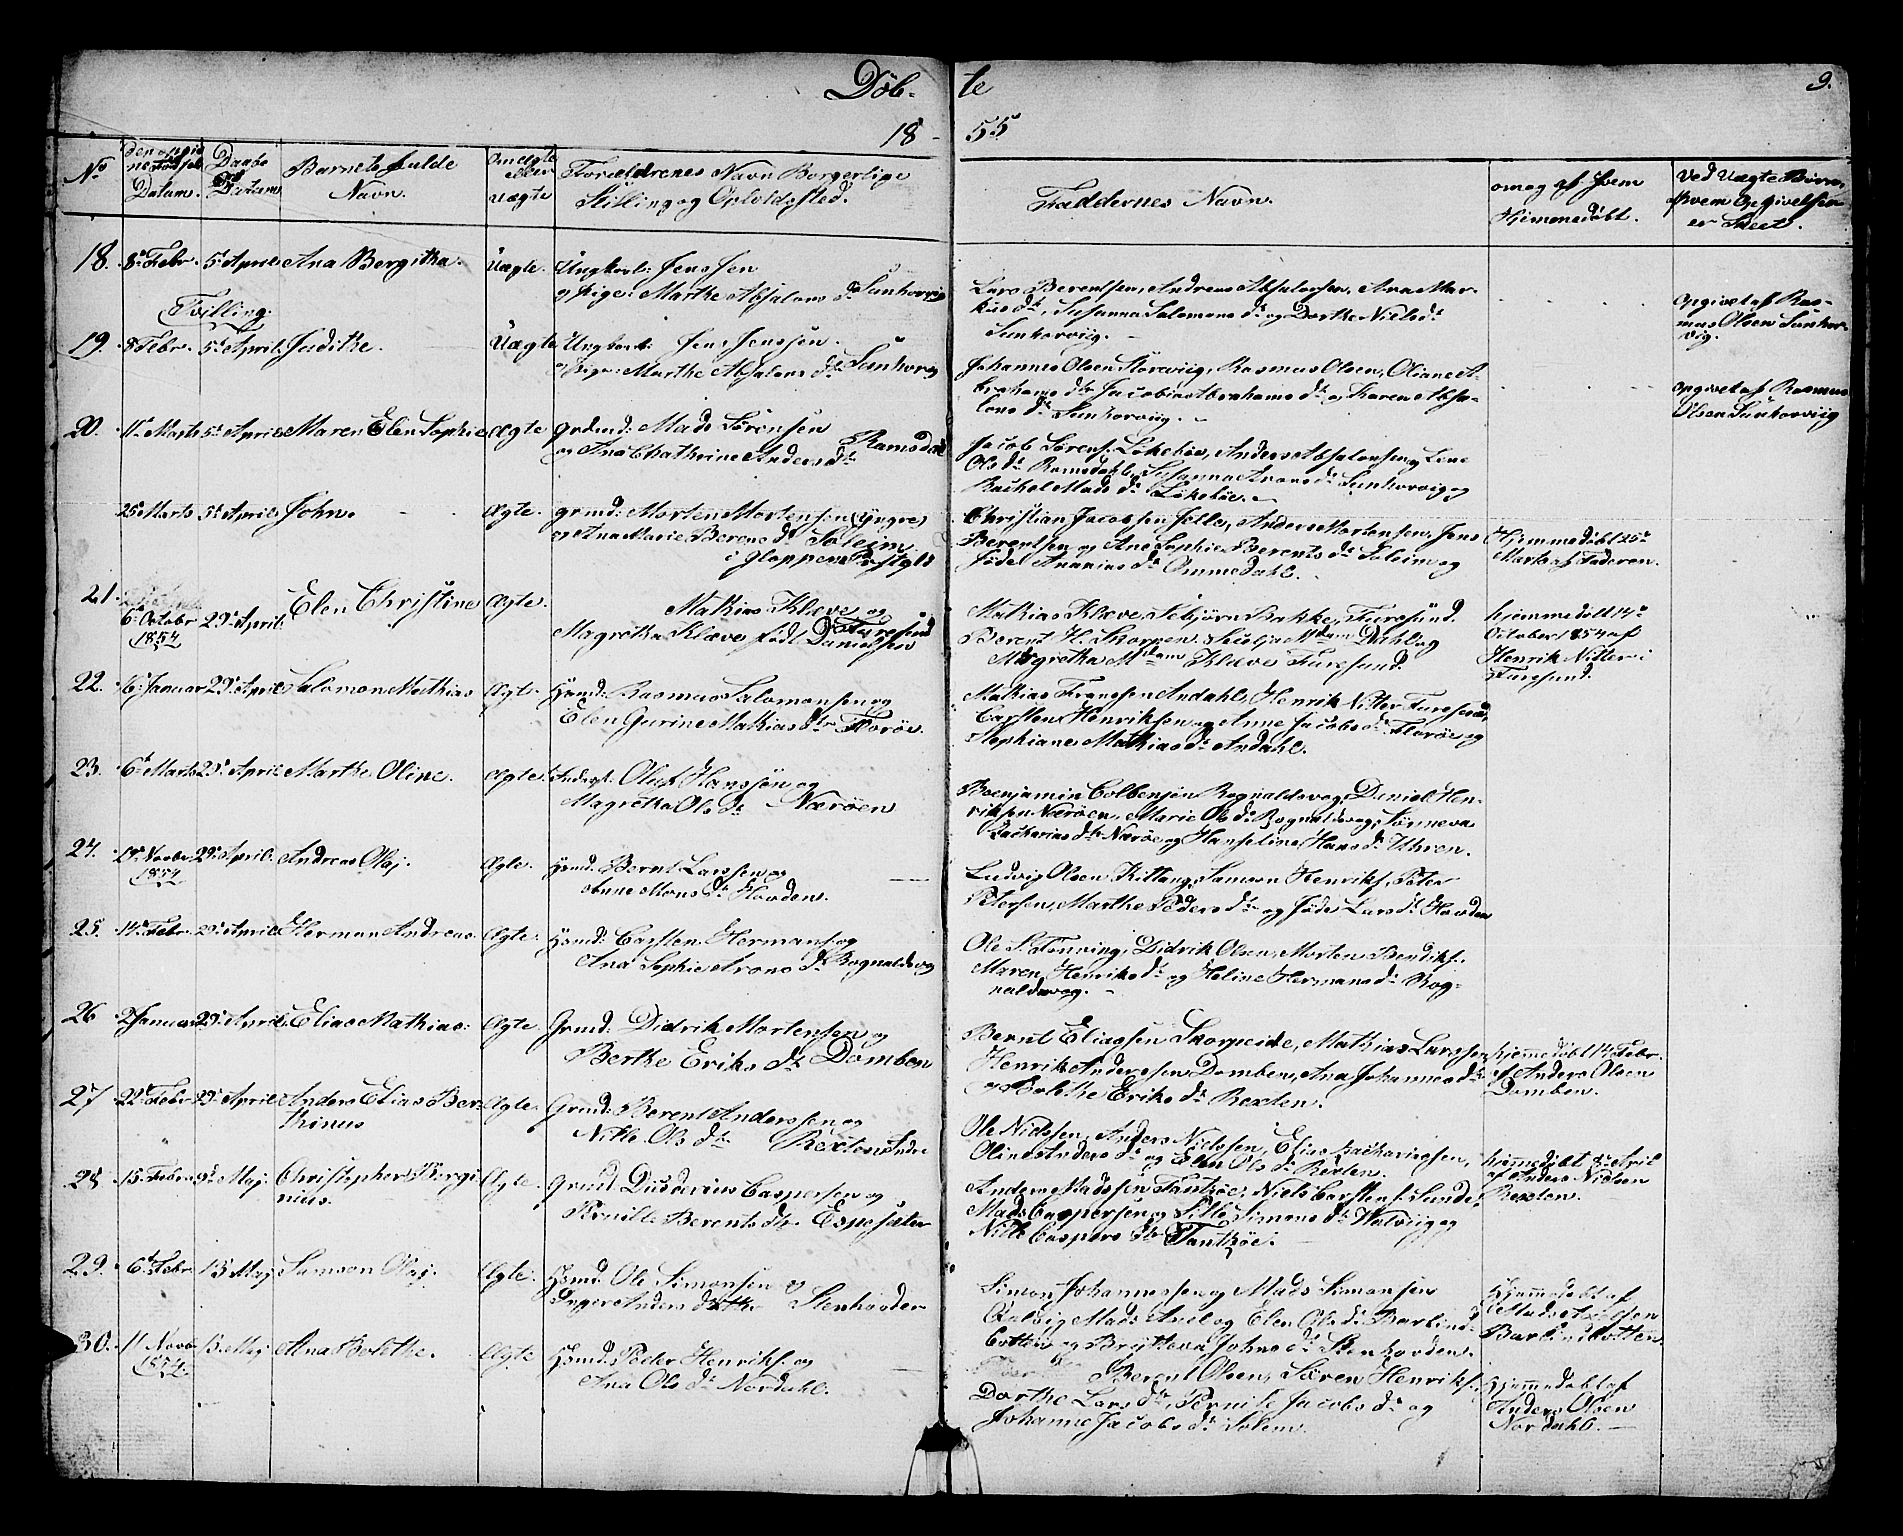 Døb-te 9.
1855
No
Datum.
Daabs Datum
Barnets fulde Navn.
Om ægte eller uægte
Forældrenes Navn Borgerlige Stilling og Opholdssted.
Faddernes Navn.
om og af hvem hjemmedøbt.
Ved Uægte Børn, af hvem Opgivelsen er skeet.
18. 8de Febr. 5te April. Ana Bergitha. Uægte. Ungkarl: Jenssen
og Pige: Marthe Absalons dtr
Lars Berentsen, Andreas Absalonsen, Ana Mar-
kus dtr, Susanna Salomons dtr og Dorthe Niels dtr
opgivet af Ras-
mus Olsen
Tvilling.
19. 8 Febr. 5te April. Judithe. Uægte Ungkarl: Jens Jenssen.
og Pige: Marthe Absalons dtr
Johannes Olsen Storeviig, Rasmus Olsen, Oliane A-
brahams dtr Jacobine Abrahams dtr og Karen Absa-
lons dtr
opgivet af Rasmus
Olsen
20. 11te Marts 5te April Maren Elen Sophie Ægte grdmd: Mads Sørensen
og Ana Chathrine Anders dtr Ramsdal
Jacob Sørens. Løkebøe, Anders Absalonsen og Lene
Ols dtr Ramsdahl, Susanna Arons dtr
Rachel Mads dtr Løkebøe.
25 Marts 5te April John. Ægte. grmd: Morten Mortensen (Yngre)
og Ana Marie Berens dtr Soleim
i Gloppens Præstgld
Christian Jacobsen Felle, Anders Mortensen, Jens
Berentsen og Ane Sophie Berents dtr Soleim og
Jøde Ananias dtr Ommedahl.
Hjemmedøbt 25de
Marts af Faderen.
21. 6te Octobr 1854 29de April. Elen Christine Ægte. Mathias Klæve og
Magretha Klæve født Danielsen Furesund
Mathias Klæve, Bakke, Furesund.
Berent H. Skorpen, Mdam Dahl og
Magretha Mdam Klæve Furesund.
hjemmedøbt 14de
October 1854 af
Henrik Nitter i
Furesund.
22. 16 Januar 29de April Salomon Mathias Ægte. Hsmd: Rasmus Salomonsen og
Elen Gurine Mathias dtr Florøe.
Mathias Fransen Andahl, Henrik Nitter Furesund,
Carsten Henriksen og Anne Jacobs dtr Florøe og
Stephiane Mathias dtr Andahl.
23. 6te Marts 29de April Marthe Oline. Ægte Inderst: Oluf Hanssøn og
Magretha Ols dtr Nærøen
Benjamin Colbensøn Rognaldsvog, Daniel Hen-
riksen Nærøen, Marie Ols dtr Rognaldsvog, Sønneva
Zacharias dtr Nærøe og Hanseline Hans dtr Uhren.
24. 19de Novbr 1854 29de April. Andreas Olaj. Ægte. Hsmd: Bernt Larssen og
Anne Mons dtr Hovden.
Ludvig Olsen Kittang, Samson Henriks. Peter
Petersen, Marthe Peders dtr og Jøde Lars dtr Hovden
25. 14de Febr. 29de April Herman Andreas. Ægte Hsmd: Carsten Hermans. og
Ana Sophie Arons dtr Rognaldsvog
Ole S. Fønning, Didrik Olsen, Morten Bendiks.
Maren Henriks dtr og Heline Hermans dtr Rog-
naldsvog.
26 2 Januar 29de April. Elias Mathias: Ægte. Grmd: Didrik Mortensen og
Berthe Eriks dtr Domben
Bernt Eliassen Skorpeide, Mathias Larssen
Henrik Anderssen Domben, Ana Johannes dtr
og Bolethe Eriks dtr Rexten.
hjemmedøbt 14 Febr.
af Anders Olsen
Domben.
27 22de Febr 29de April Anders Elias Ber-
thinus Ægte. Grmd: Berent Anderssen og
Nille Ols dtr Rexten Indre
Ole Nielssen, Anders Nielssen, Elias Zachariassen,
Oline Anders dtr og Elen Ols dtr Rexten.
hjemmedøbt 8de April
af Anders Nielsen
Rexten.
28 15 Febr. 9de Maj. Christopher Bergi-
nius. Ægte. Grmd: Caspersen og
Pernille Berents dtr Espesæter
Anders Madssen Tantøe, Niels Carstens. Sunde,
Mads Caspersen og Sille Simons dtr Walviig og
Nille Caspers dtr Tantøe.
29. 6te Febr. 13 Maj Samson Olaj. Ægte. Hsmd: Ole Simonsen &
Inger Anders dtr Stenhovden
Simon Johannessen og Mads Simonsen
Mads Axel og Elen Ols dtr Barlind-
botten og Johns dtr Stenhovden.
Hjemmedøbt af
Mads Axelsen
Barlindbotten.
30. 11 Novbr 1854. 13 Maj Ana Bolethe. Ægte Hsmd: Peder Henriks. og
Ana Ols dtr Nordahl.
Berent Olsen, Søren Henriks.
Dorthe Lars dtr, Pernile Jacobs dtr og
Johanne Jacobs dtr Solem.
Hjemmedøbt af
Anders Olsen
Nordahl.